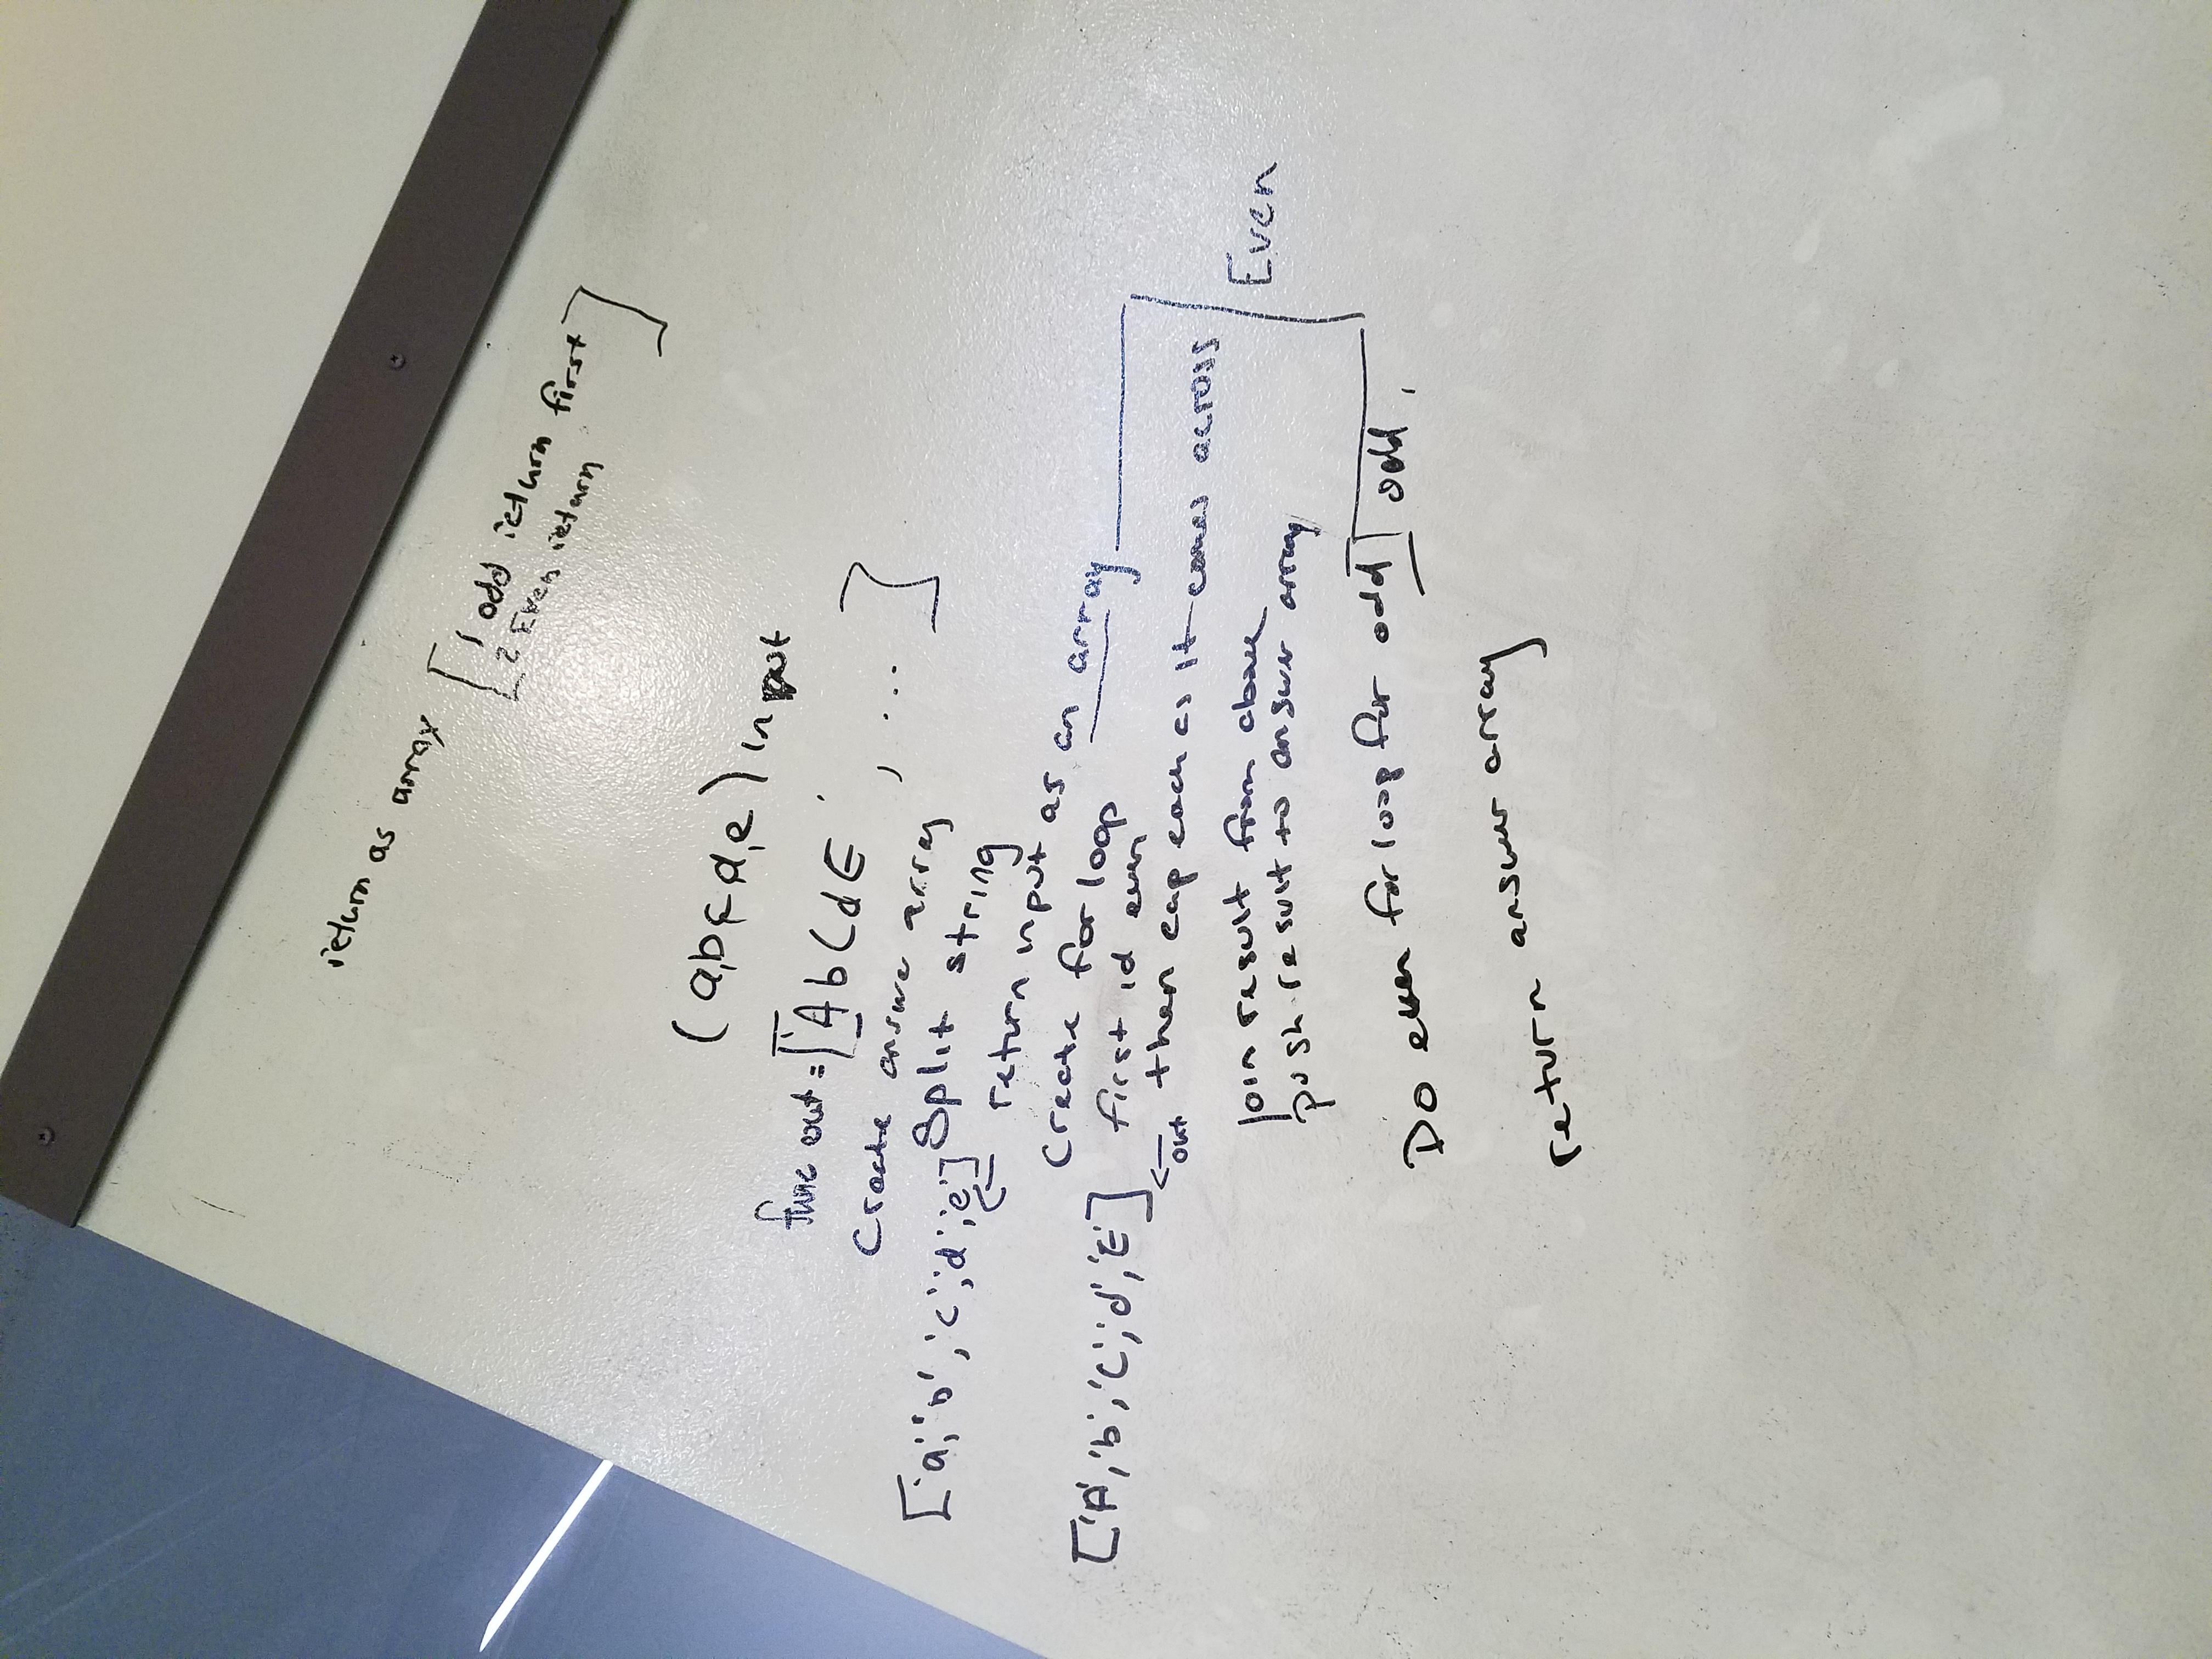 return as array
[1 odd return first
2 Even return]
(a,b,c,d,e) input
func out = ['AbCdE', ...]
Create answer array
['a','b','c','d','e'] Split string
← return input as an array
Create for loop
['A','b','C','d','E'] first id even
← out then cap each as it comes across
Even
join result from above
push result to answer array
Do even for loop for odd odd,
return answer array